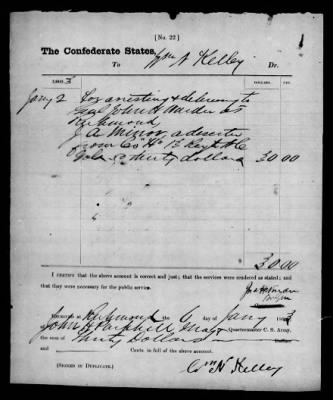 1
[No. 22]
The Confederate States,
To Wm N Kelley Dr.
1863
DOLLARS. CTS.
Jany 2 For arresting & delivering to
Genl John H Winder at
Richmond
J. A. Minor a deserter
from Co "H"
thirty dollars 30.00
30.00
I certify that the above account is correct and just; that the services were rendered as stated; and
that they were necessary for the public service.
Jno H Winder
Received at Richmond 6 day of Jany 1863
John H Parkhill Major Quartermaster C. S. Army,
the sum of Thirty Dollars
Cents in full of the above account.
Wm N Kelley
(Signed in Duplicate.)